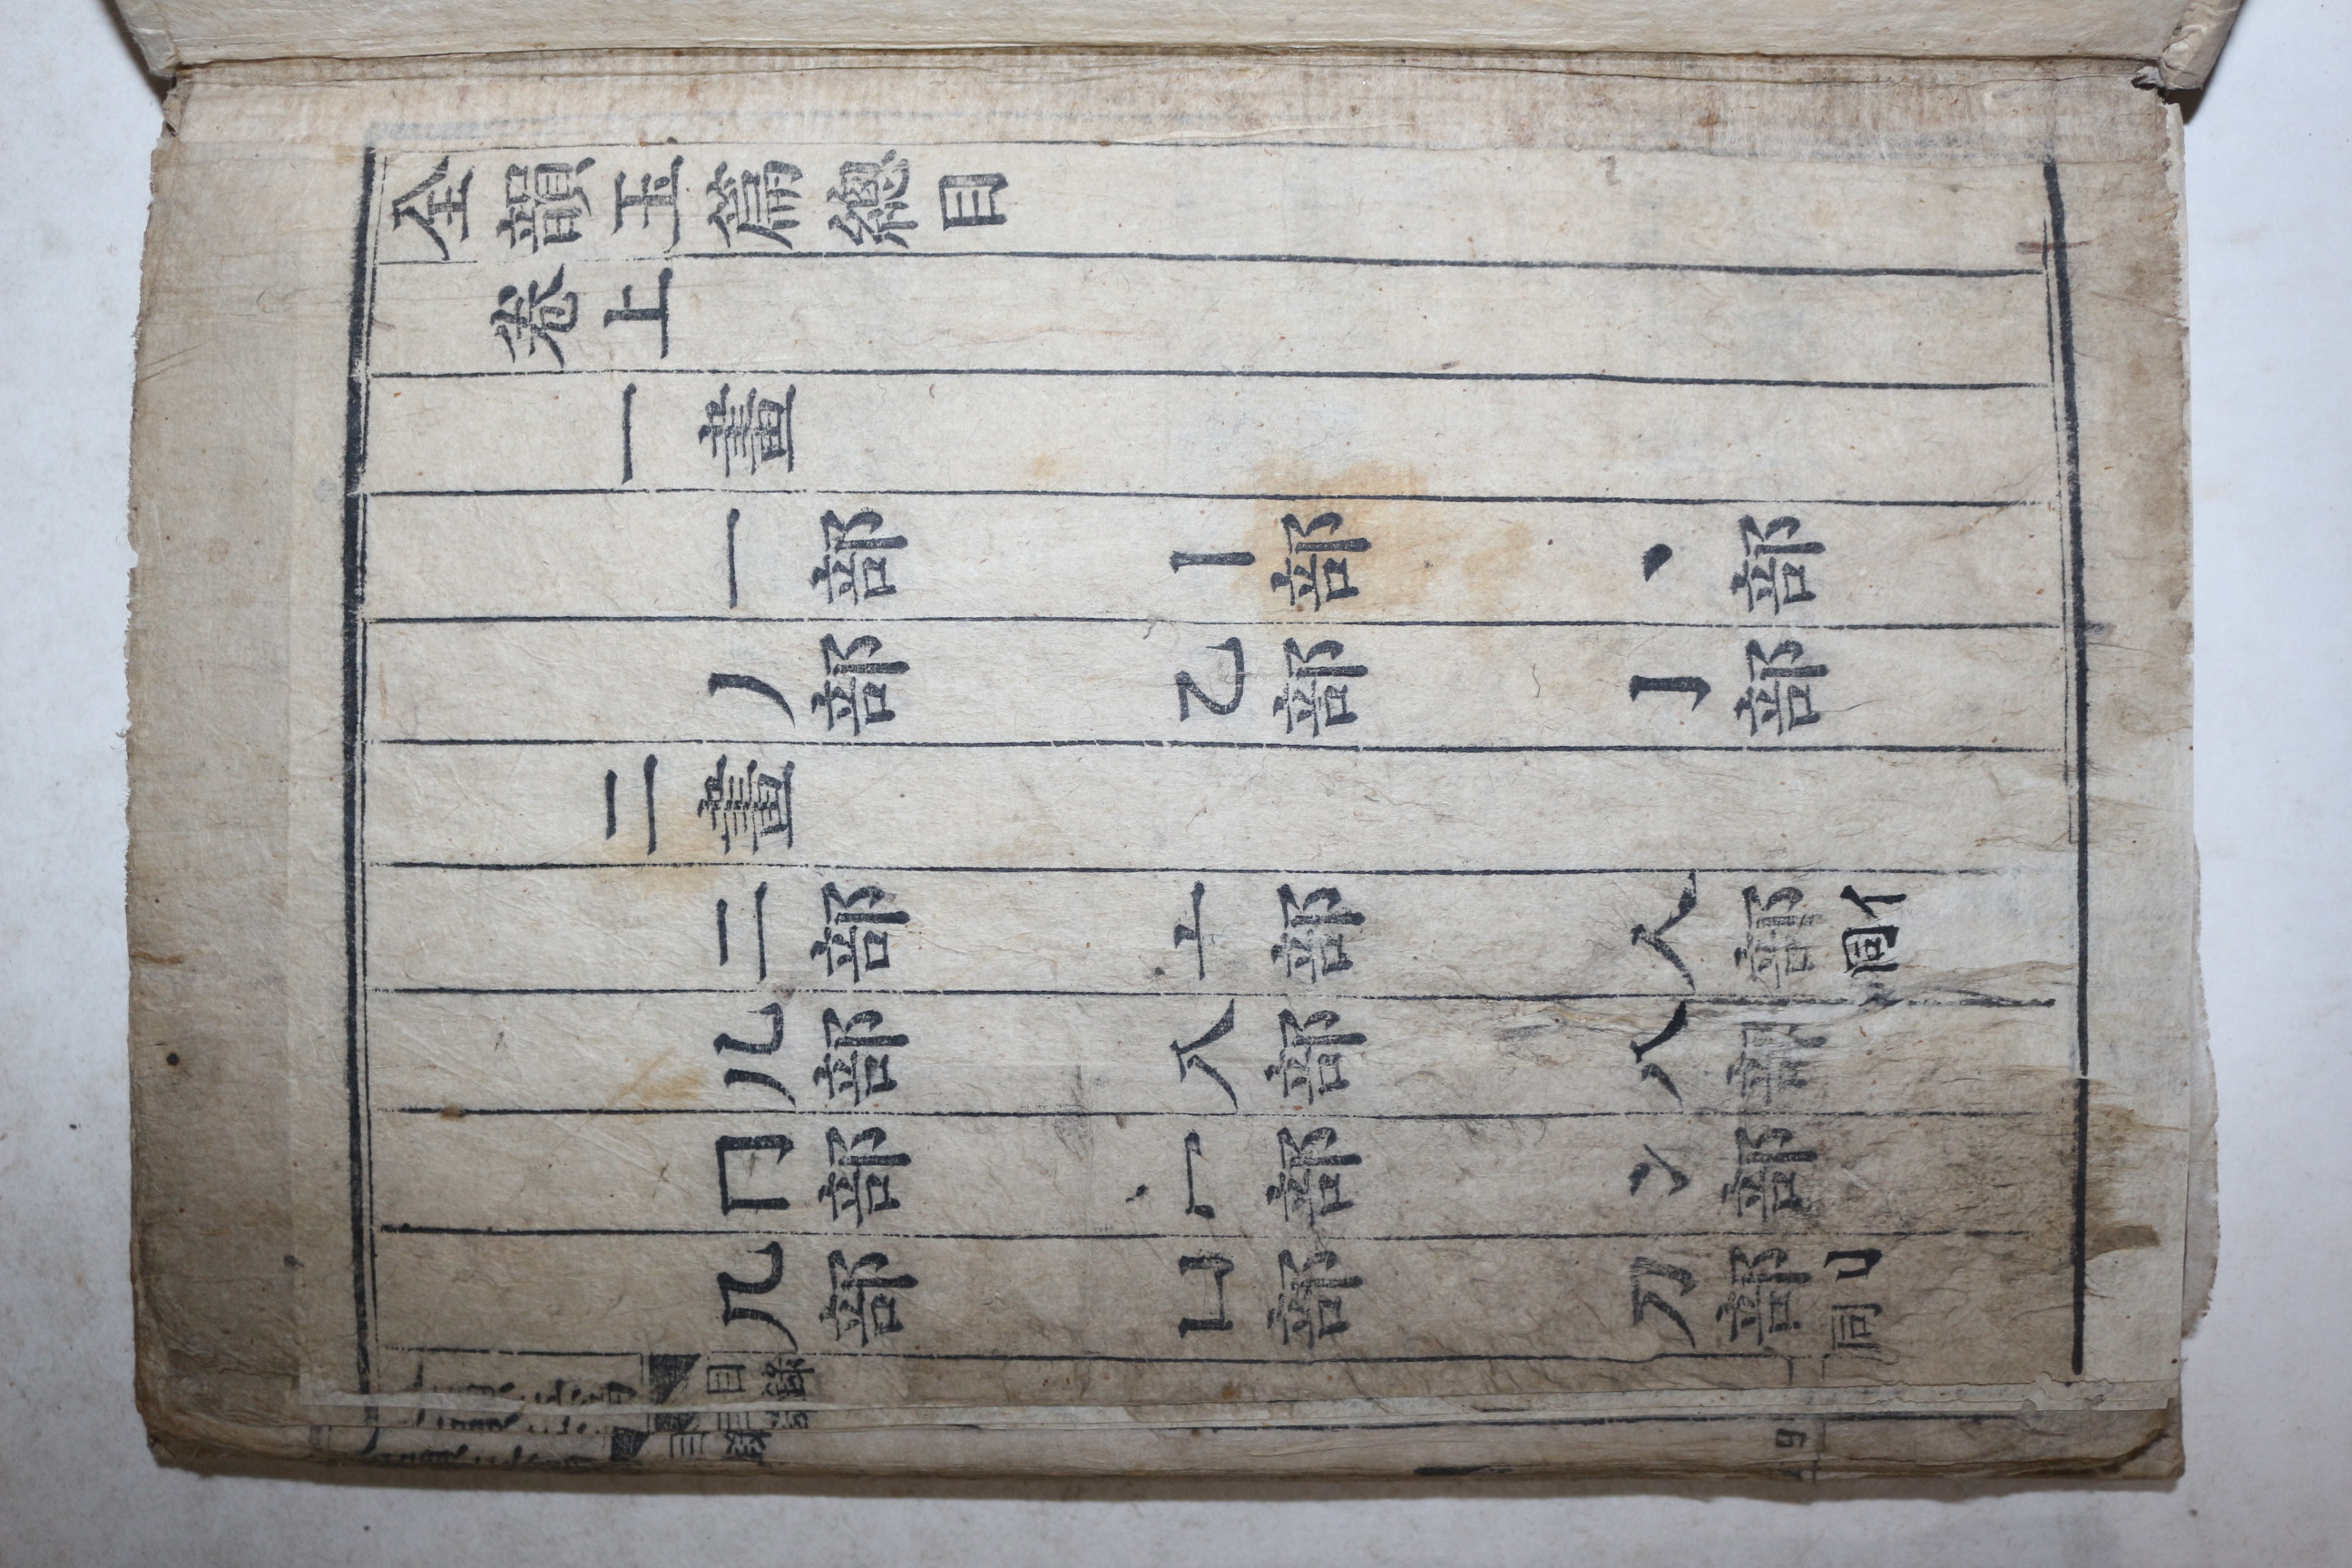 全韻玉篇總目
卷上
一畫
一部 丨部 丶部
丿部 乙部 亅部
二畫
二部 亠部 人部 亻同
儿部 入部 八部
冂部 冖部 冫部
几部 凵部 刀部 刂同
目錄